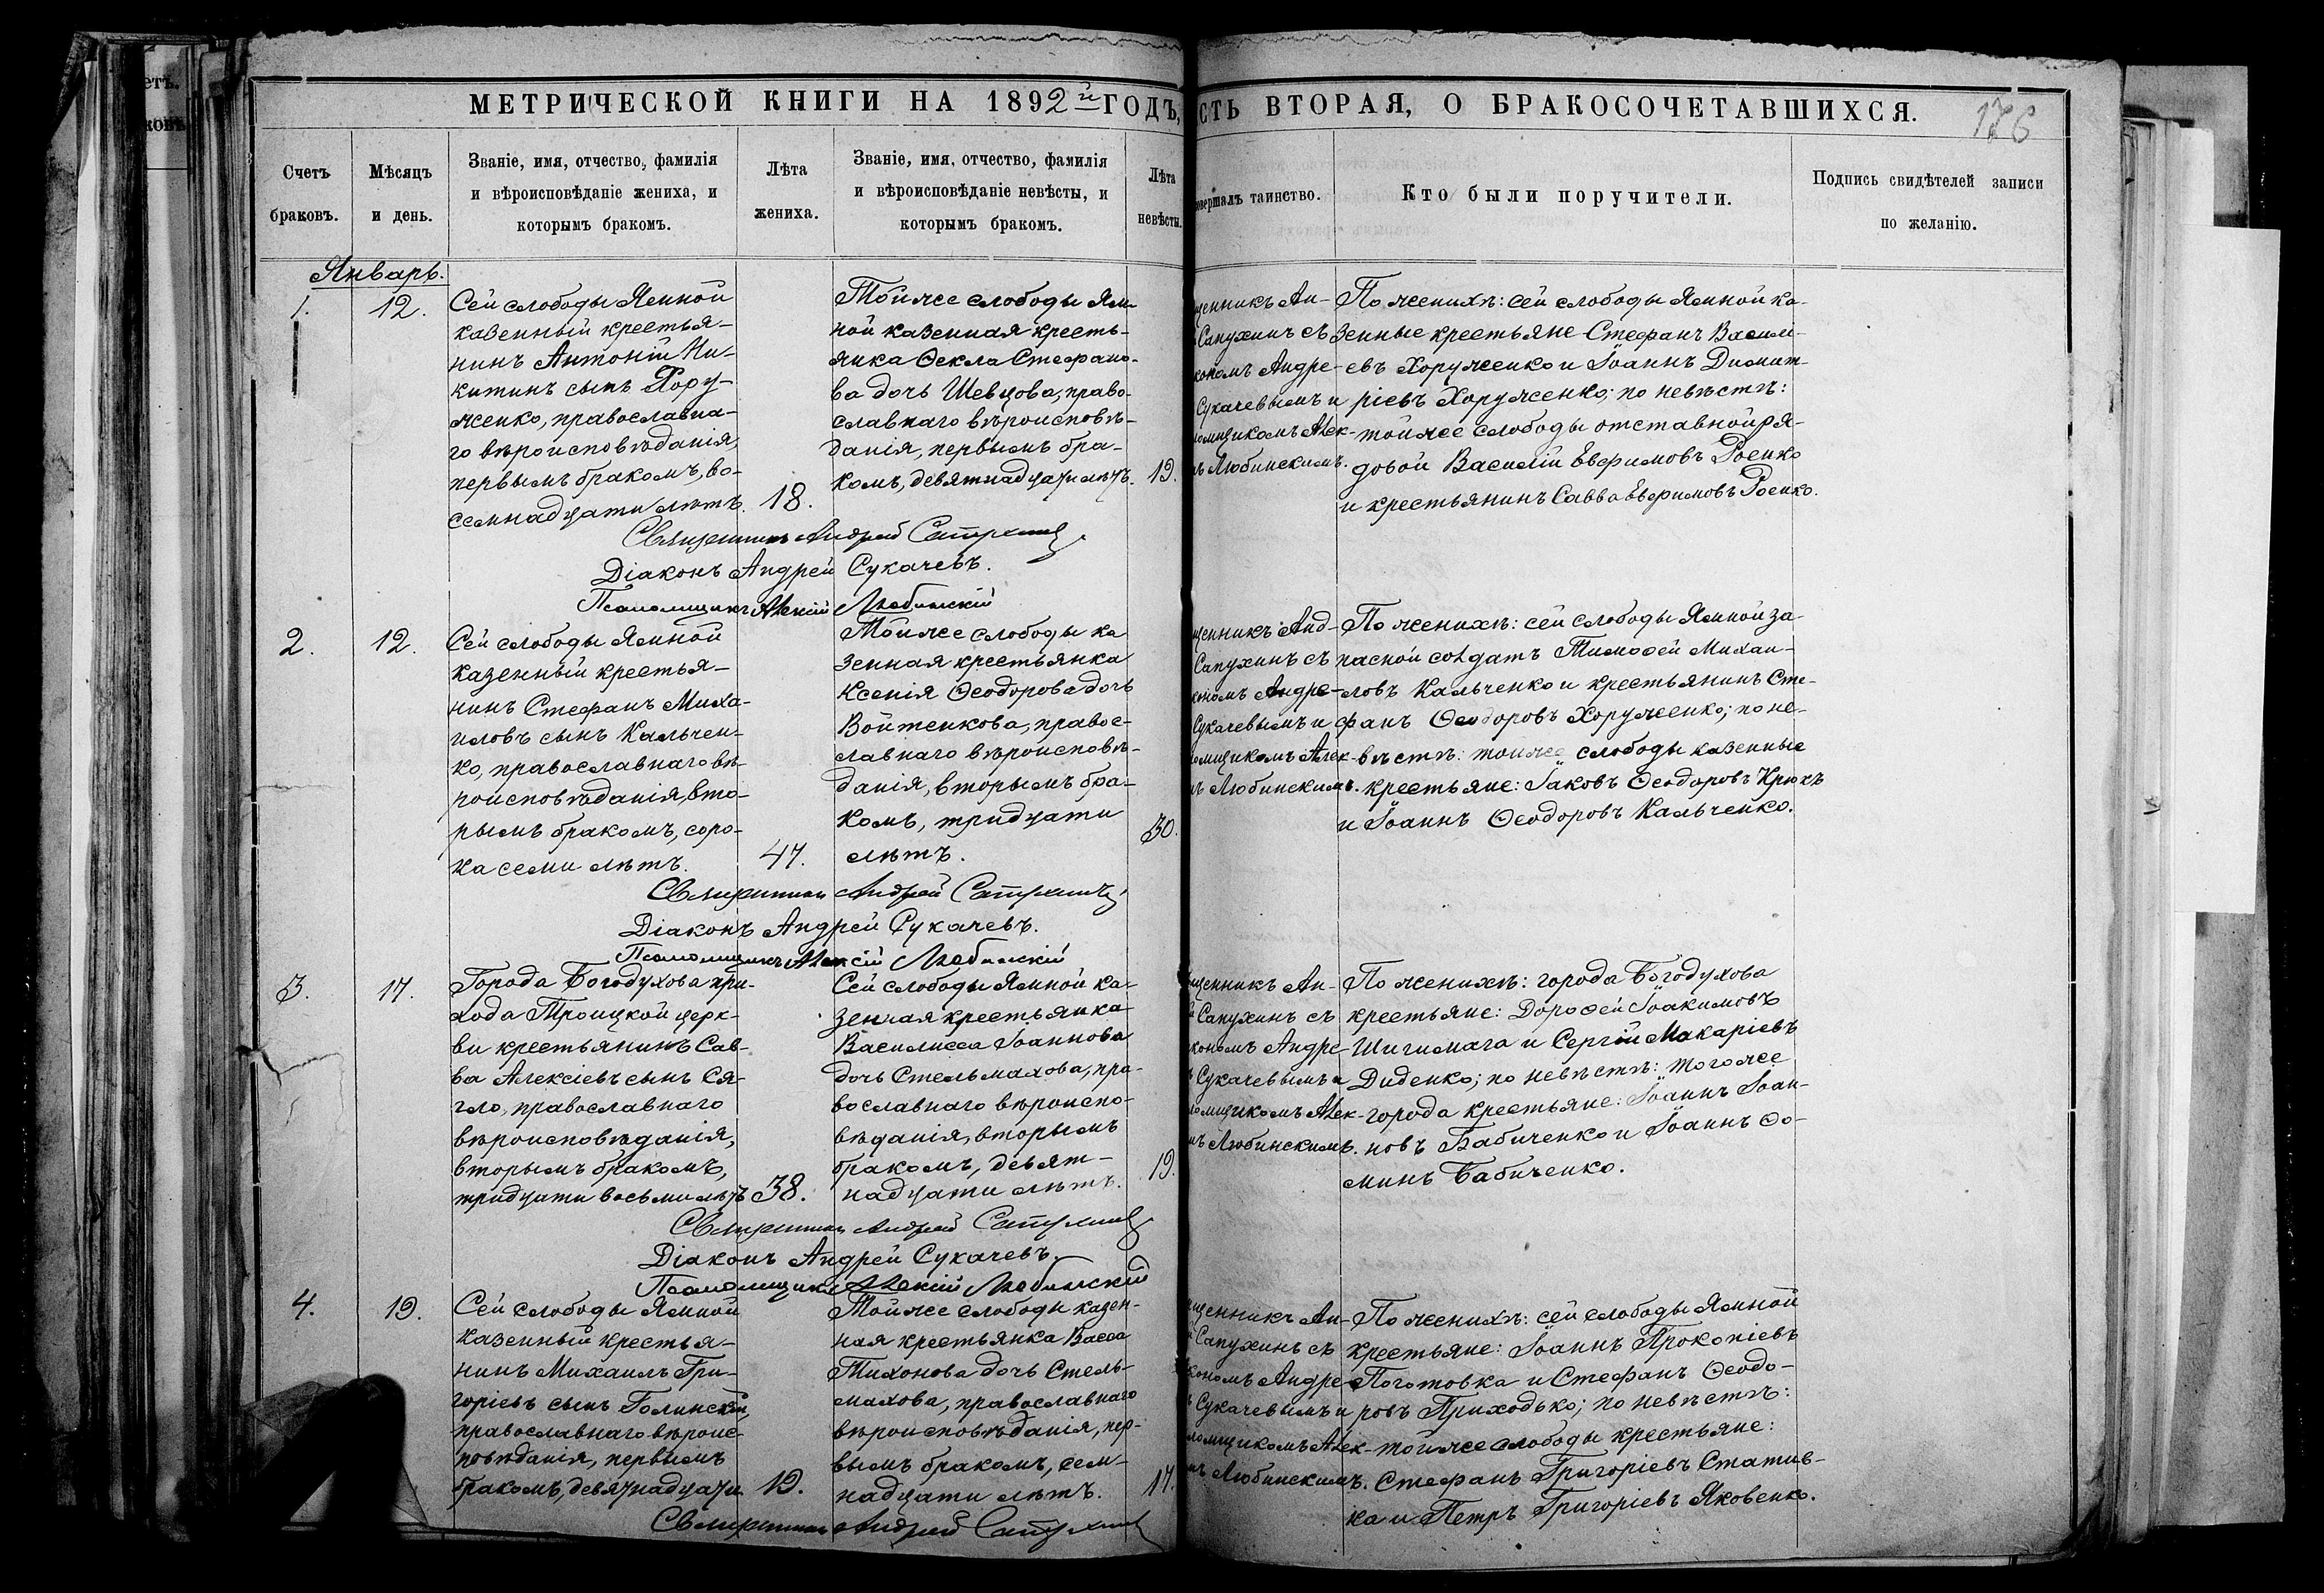 етъ.
МЕТРИЧЕСКОЙ КНИГИ НА 1892й ГОДЪ,
СТЬ ВТОРАЯ, О БРАКОСОЧЕТАВШИХСЯ.
176
Счетъ браковъ.
Мѣсяцъ и день.
Званіе, имя, отчество, фамилія
и вѣроисповѣданіе жениха, и
которымъ бракомъ.
Лѣта
жениха.
Званіе, имя, отчество, фамилія
и вѣроисповѣданіе невѣсты, и
которымъ бракомъ.
Лѣта
невѣсты.
совершалъ таинство.
Кто были поручители.
Подпись свидѣтелей записи
по желанію.
Январь.
1.
12.
Сей слободы Ямной
казенный крестья-
нинъ Антоній Ни-
китинъ сынъ Хору-
женко, православна-
го вѣроисповѣданія,
первымъ бракомъ, во-
семнадцати лѣтъ.
18.
Тойже слободы Ям-
ной казенная кресть-
янка Ѳекла Стефано-
ва дочь Шевцова, право-
славнаго вѣроисповѣ-
данія, первымъ бра-
комъ, девятнадцати лѣтъ.
19.
щенникъ Ан-
Сапухинъ съ
кономъ Андре-
Сукачевымъ и
ломщикомъ Алек-
ъ Любинскимъ.
По женихѣ: сей слободы Ямной ка-
зенные крестьяне Стефанъ Васили-
евъ Хоруженко и Іоаннъ Димит-
ріевъ Хоруженко; по невѣстѣ:
тойже слободы отставной ря-
довой Василій Евфимовъ Роенко
и крестьянинъ Савва Евфимовъ Роенко.
Священникъ Андрей Сапухинъ
Діаконъ Андрей Сукачевъ.
Псаломщикъ Алексій Любинскій
2.
12.
Сей слободы Ямной
казенный крестья-
нинъ Стефанъ Миха-
иловъ сынъ Кальчен-
ко, православнаго вѣ-
роисповѣданія, вто-
рымъ бракомъ, соро-
ка семи лѣтъ.
47.
Тойже слободы ка
зенная крестьянка
Ксенія Ѳеодорова дочь
Войтенкова, правос-
славнаго вѣроисповѣ-
данія, вторымъ бра-
комъ, тридцати
лѣтъ.
30.
щенникъ Анд-
Сапухинъ съ
кономъ Андре-
Сукачевымъ и
ломщикомъ Алек-
ъ Любинскимъ.
По женихѣ: сей слободы Ямной за-
пасной солдатъ Тимоѳей Михаи-
ловъ Кальченко и крестьянинъ Сте-
фанъ Ѳеодоровъ Хоруженко; по не-
вѣстѣ: тойже слободы казенные
крестьяне: Іаковъ Ѳеодоровъ Крюкъ
и Іоаннъ Ѳеодоровъ Кальченко.
Священникъ Андрей Сапухинъ
Діаконъ Андрей Сукачевъ.
Псаломщикъ Алексій Любинскій
3.
17.
Города Богодухова при-
хода Троицкой церк-
ви крестьянинъ Сав-
ва Алексіевъ сынъ Ся-
гло, православнаго
вѣроисповѣданія,
вторымъ бракомъ,
тридцати восьми лѣтъ
38.
Сей слободы Ямной ка-
зенная крестьянка
Василисса Іоаннова
дочь Стельмахова, пра-
вославнаго вѣроиспо-
вѣданія, вторымъ
бракомъ, девят-
надцати лѣтъ.
19.
щенникъ Ан-
й Сапухинъ съ
кономъ Андре-
ъ Сукачевымъ и
ломщикомъ Алек-
мъ Любинскимъ.
По женихѣ: города Богодухова
крестьяне: Дороѳей Іоакимовъ
Шигимага и Сергій Макаріевъ
Диденко; по невѣстѣ: тогоже
города крестьяне: Іоаннъ Іоан-
новъ Бабиченко и Іоаннъ Ѳо-
минъ Бабиченко.
Священникъ Андрей Сапухинъ
Діаконъ Андрей Сукачевъ.
Псаломщикъ Алексій Любинскій
4.
19.
Сей слободы Ямной
казенный крестья-
нинъ Михаилъ Гри-
горіевъ сынъ Голинскій,
православнаго вѣроис-
повѣданія, первымъ
бракомъ, девятнадцати
19.
Тойже слободы казен-
ная крестьянка Васса
Тихонова дочь Стель-
махова, православнаго
вѣроисповѣданія, пер-
вымъ бракомъ, сем-
надцати лѣтъ.
17.
щенникъ Ан-
й Сапухинъ съ
кономъ Андре-
ъ Сукачевымъ и
ломщикомъ Алек-
мъ Любинскимъ.
По женихѣ: сей слободы Ямной
крестьяне: Іоаннъ Прокопіевъ
Поготовка и Стефанъ Ѳеодо-
ровъ Приходько; по невѣстѣ:
тойже слободы крестьяне:
Стефанъ Григоріевъ Статив-
ка и Петръ Григоріевъ Яковенко.
Священникъ Андрей Сапухинъ